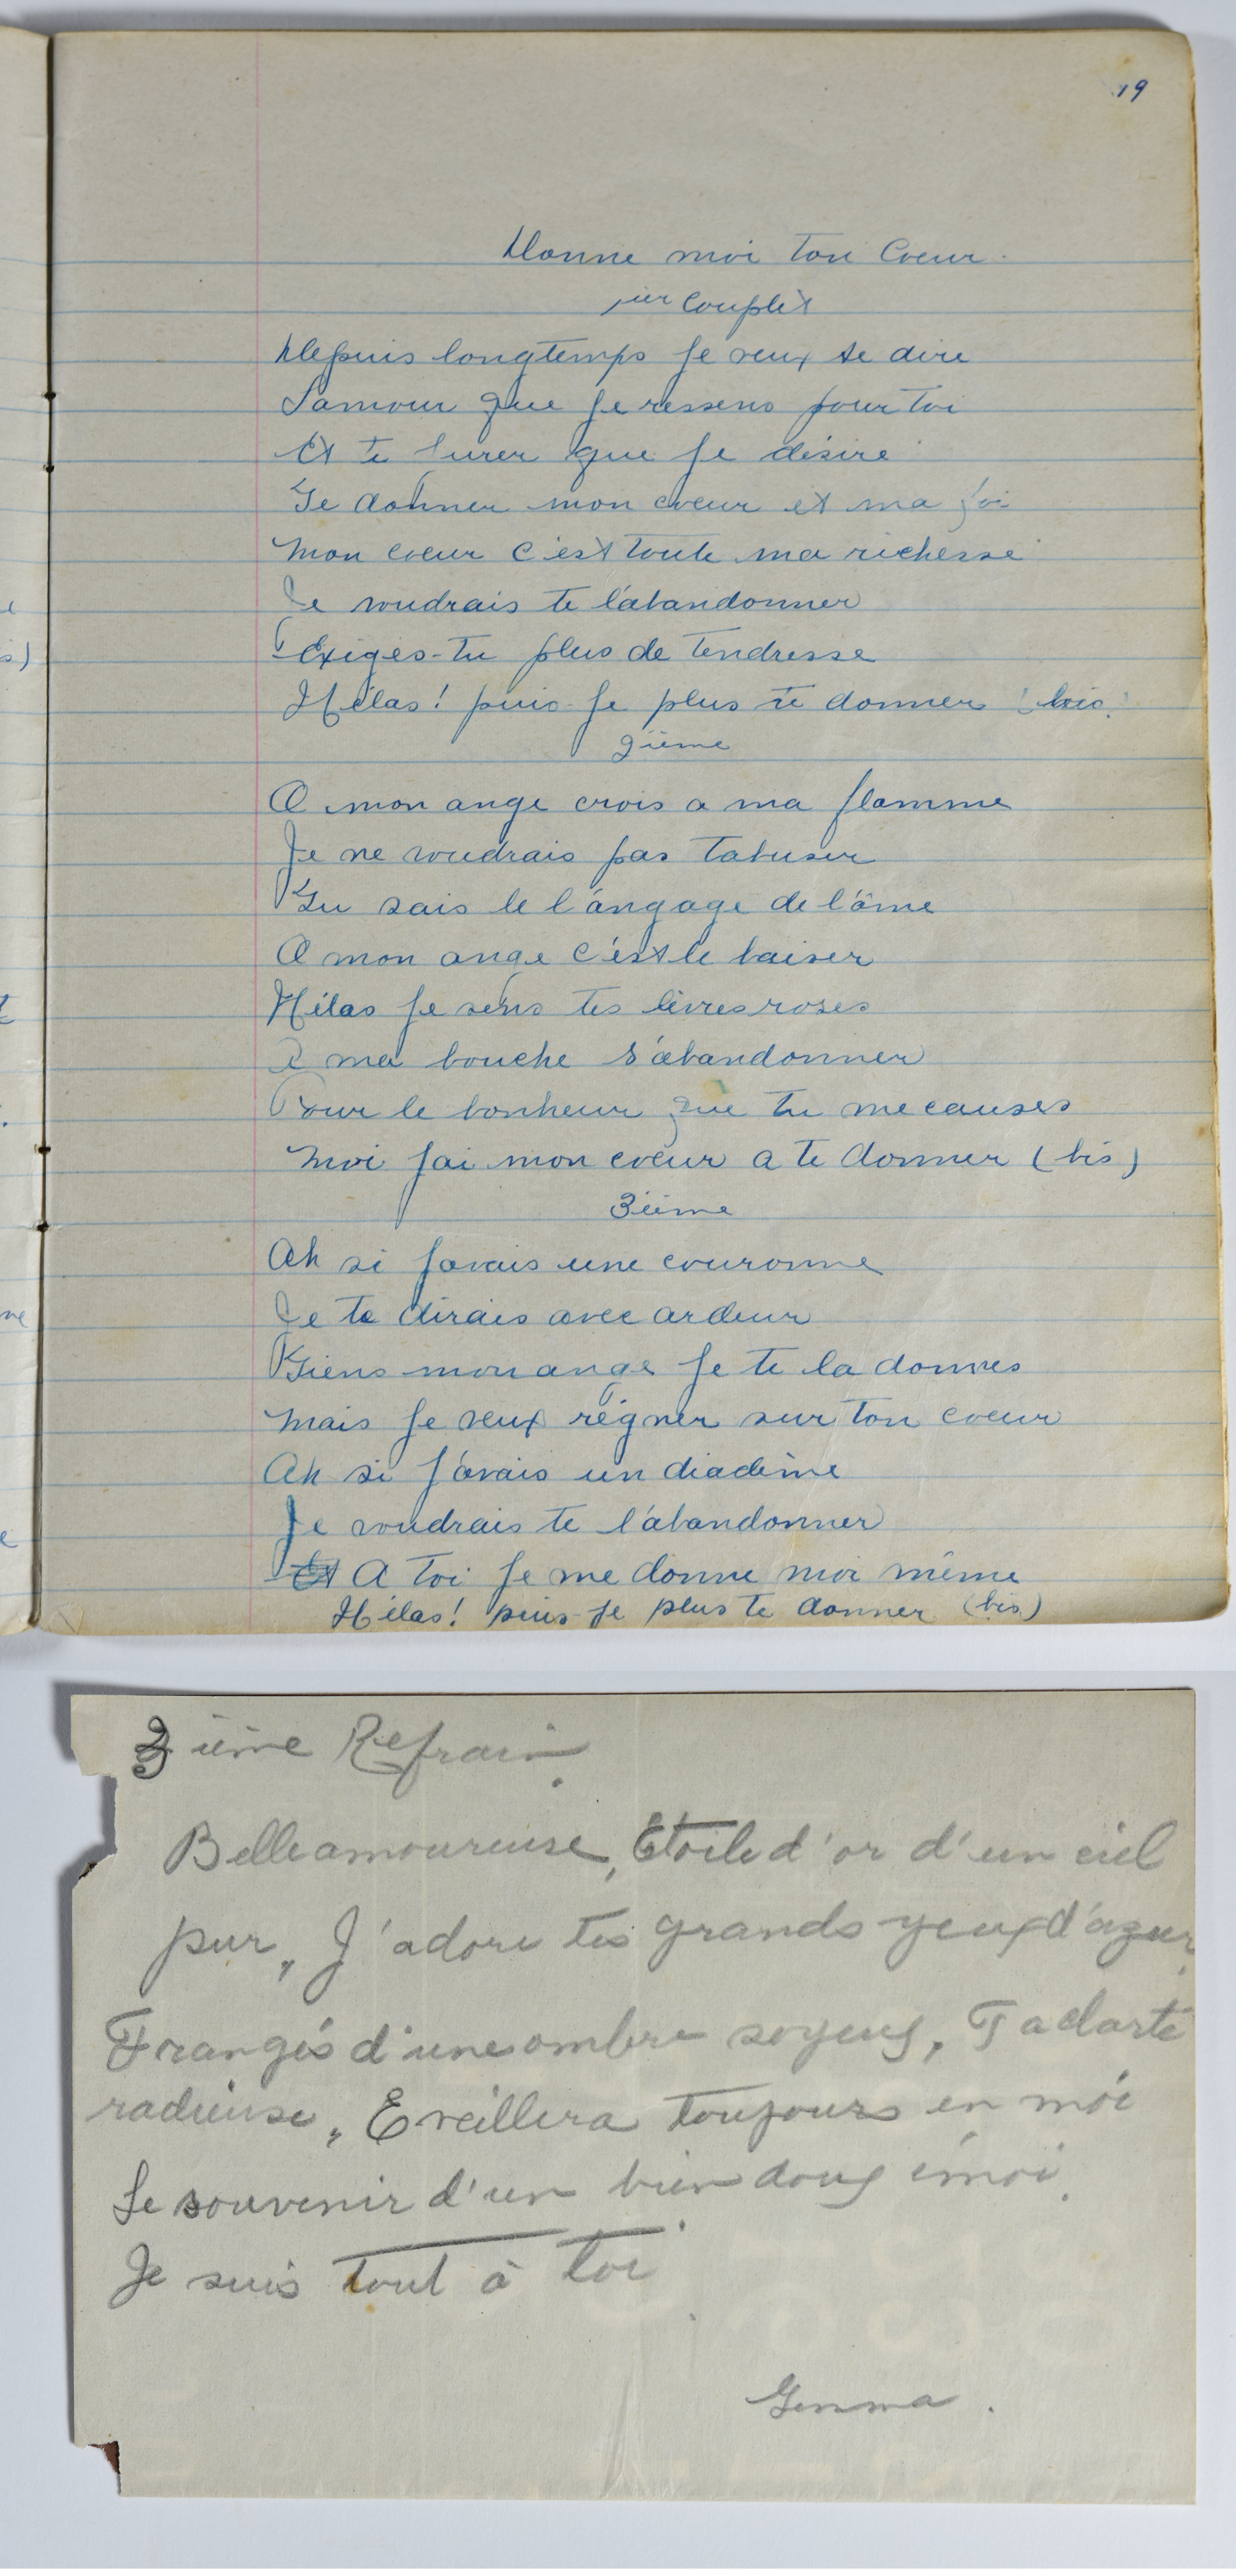 19
Donne moi ton Coeur.
1ier Couplet
Depuis longtemps je veux te dire
L'amour que je ressens pour toi
Et te jurer que je désire
Te donner mon coeur et ma foi
Mon coeur c'est toute ma richesse
Je voudrais te l'abandonner
Exiges-tu plus de tendresse
Hélas! puis-je plus te donner (bis)
2ième
O mon ange crois a ma flamme
Je ne voudrais pas t'abuser
Tu sais le langage de l'âme
O mon ange c'est le baiser
Hélas je sens tes lèvres roses
A ma bouche s'abandonner
Pour le bonheur que tu me causes
Moi j'ai mon coeur a te donner (bis)
3ième
Ah si j'avais une couronne
Je te dirais avec ardeur
Tiens mon ange je te la donnes
Mais je veux régner sur ton coeur
Ah si j'avais un diadème
Je voudrais te l'abandonner
A toi je me donne moi même
Hélas! puis-je plus te donner (bis)
3ième Refrain.
Belle amoureuse, Etoile d'or d'un ciel
pur, J'adore tes grands yeux d'azur,
Frangés d'une ombre soyeus, Ta clarté
radieuse, Eveillera toujours en moi
Le souvenir d'un bien doux émoi.
Je suis tout à toi.
Gemma.